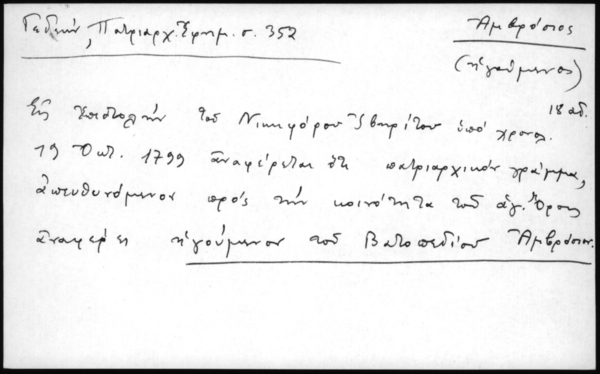 Γεδεών, Πατριαρχ. Ἐφημ. σ. 352
Ἀμβρόσιος
(ἡγούμενος)
18 αἰ.
Εἰς ἐπιστολὴν τοῦ Νικηφόρου Ἰβηρίτου ὑπό χρονολ.
19 Ὀκτ. 1799 ἀναφέρεται ὅτι πατριαρχικόν γράμμα,
ἀπευθυνόμενον πρός τὴν κοινότητα τοῦ ἁγ. Ὄρους
ἀναφέρει ἡγούμενον τοῦ Βατοπεδίου Ἀμβρόσιον.